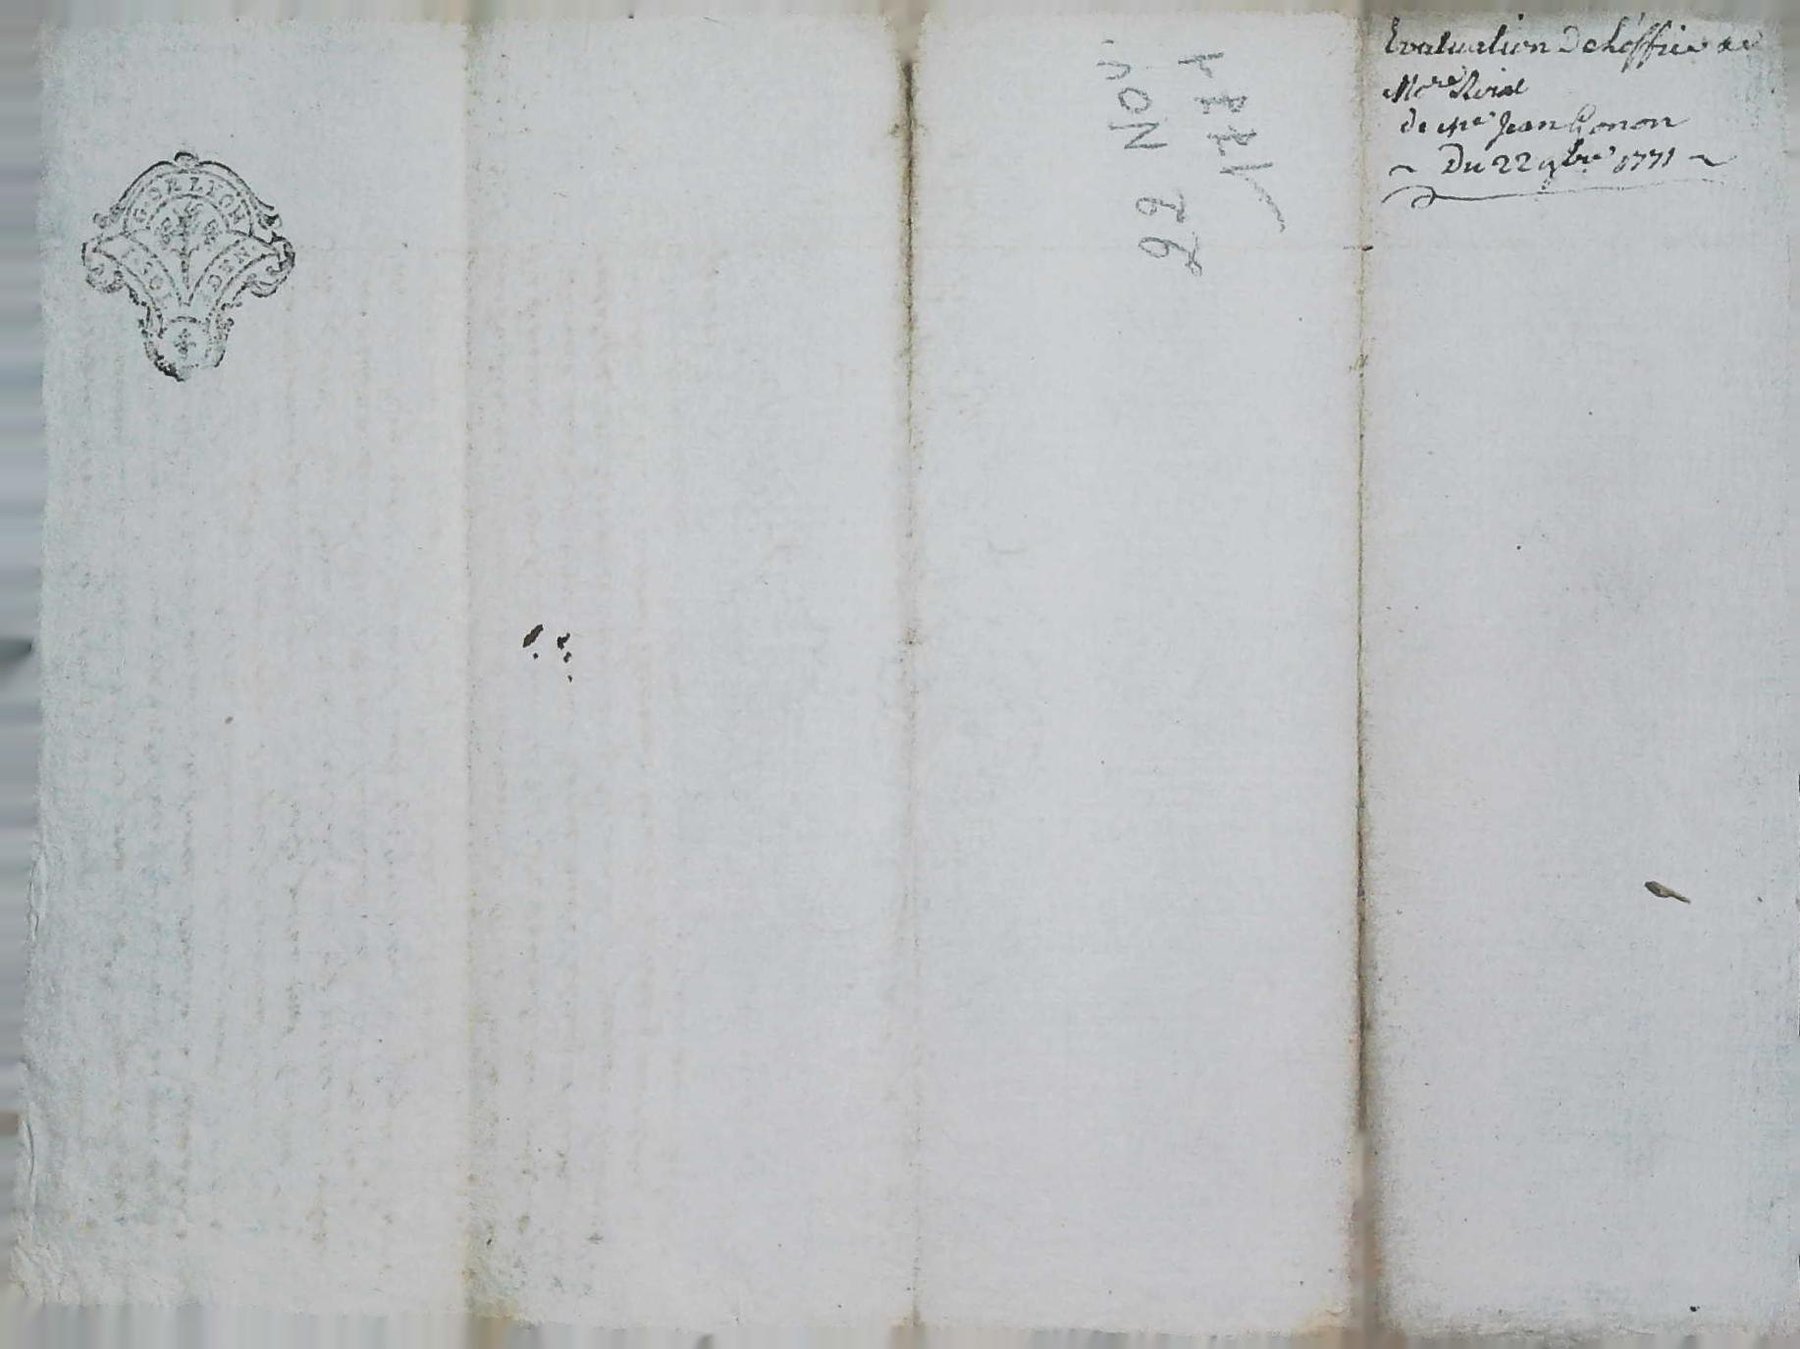 G. DE LYON
1 SOL
22 NOV.
1771
Evaluation De L'office de
No.re Roial
de Me Jean Gonon
~ Du 22 9bre 1771 ~